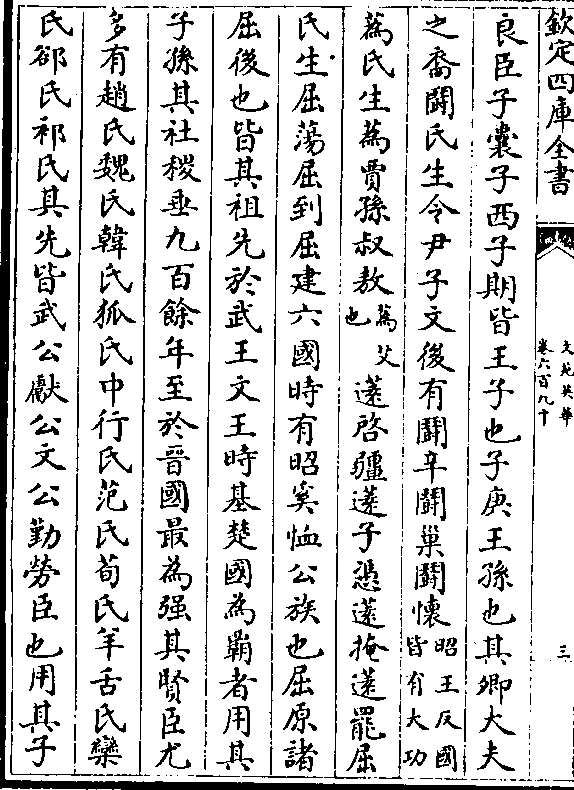 欽定四庫全書
文苑英華
卷六百九十
三
良臣子囊子西子期皆王子也子庚王孫也其卿大夫
之裔鬬氏生令尹子文後有鬬辛鬬巢鬬懷昭王反國皆有大功
蒍氏生蒍賈孫叔敖蒍艾也薳啓疆薳子馮薳掩薳罷屈
氏生屈蕩屈到屈建六國時有昭奚恤公族也屈原諸
屈後也皆其祖先於武王文王時基楚國為霸者用其
子孫其社稷垂九百餘年至於晉國最為强其賢臣尤
多有趙氏魏氏韓氏狐氏中行氏范氏荀氏羊舌氏欒
氏郤氏祁氏其先皆武公獻公文公勤勞臣也用其子